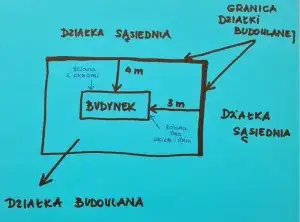 GRANICA
DZIAŁKI
BUDOWLANEJ
DZIAŁKA SĄSIEDNIA
ŚCIANA
Z OKNAMI
4 m
BUDYNEK
3 m
DZIAŁKA
SĄSIEDNIA
ŚCIANA
BEZ
OKIEN I DRZWI
DZIAŁKA BUDOWLANA